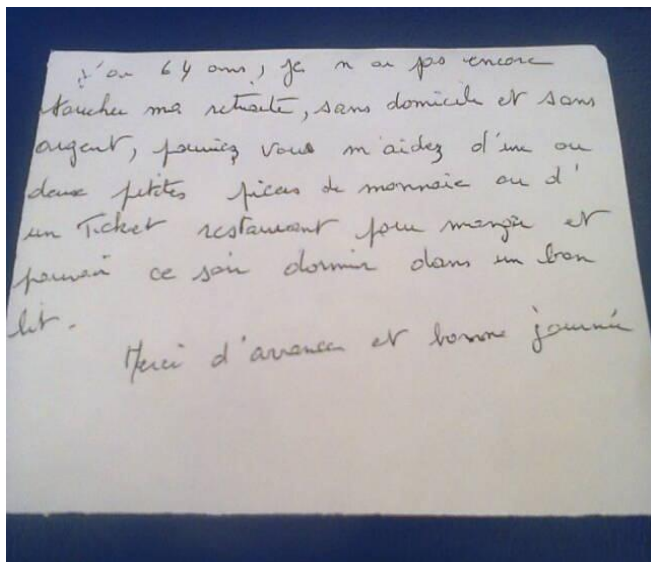 j'ai 64 ans, je n ai pas encore
toucher ma retraite, sans domicile et sans
argent, pourriez vous m'aidez d'une ou
deux petites pieces de monnaie ou d'
un Ticket restaurant pour manger et
pouvoir ce soir dormir dans un bon
lit.
Merci d'avance et bonne journée